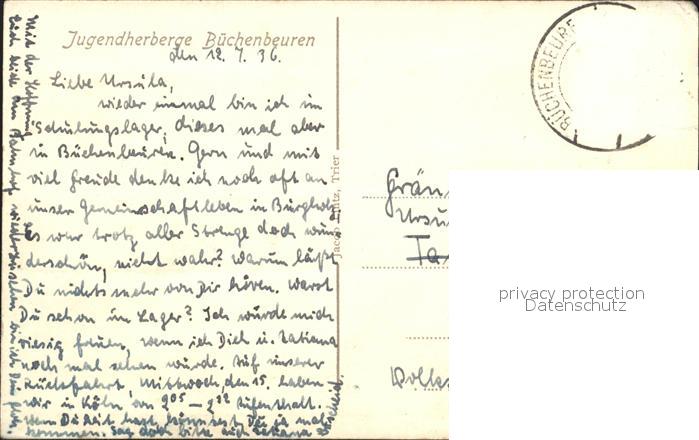 Jugendherberge Büchenbeuren
den 12. 7. 36.
Liebe Ursula,
wieder einmal bin ich im
Schulungslager, dieses mal aber
in Büchenbeuren. Gern und mit
viel Freude denke ich noch oft an
unser Gemeinschaftsleben in
Es war trotz aller Strenge doch wun
derschön, nicht wahr? Warum läßt
Du nichts mehr von Dir hören. Warst
Du schon im Lager? Ich würde mich
riesig freuen, wenn ich Dich u. Tatiana
noch mal sehen würde. Auf unserer
Rückfahrt, Mittwoch, den 15. haben
wir in Köln von 2 05 – 2 22 Aufenthalt.
Wenn Du Zeit hast, könntest Du ja mal
kommen. Sag doch bitte auch Tatiana Bescheid.
Mit der Hoffnung
Euch beide am Bahnhof wiederzusehen bin ich Deine
Trier
BÜCHENBEURE
Ursu
privacy protection
Datenschutz